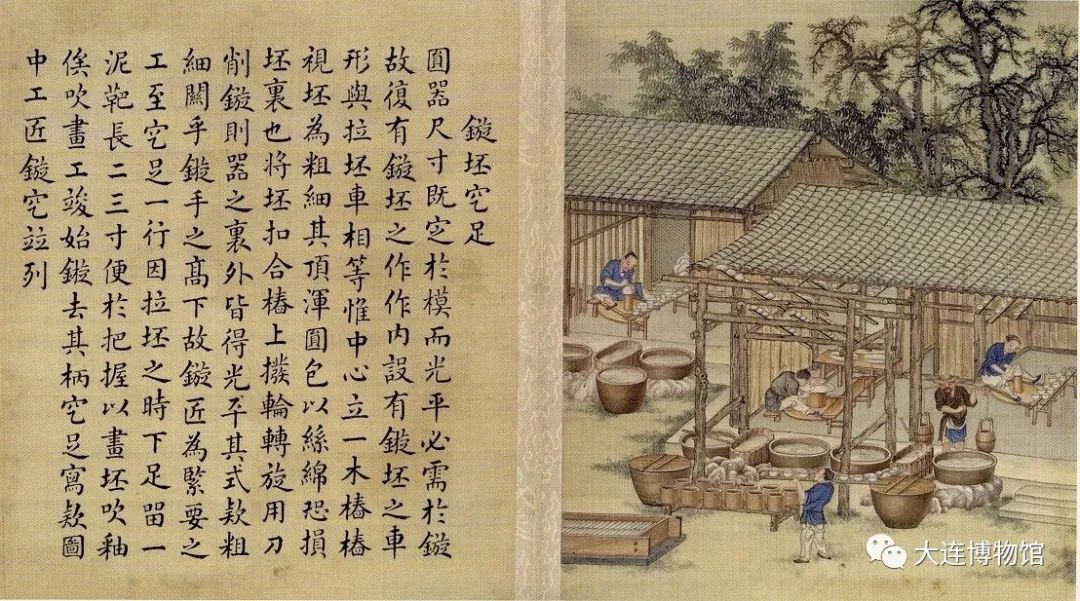 鏇坯穵足
圓器尺寸既定於模而光平必需於鏇
故復有鏇坯之作作內設有鏇坯之車
形與拉坯車相等惟中心立一木樁樁
視坯為粗細其頂渾圓包以絲綿恐損
坯裏也將坯扣合樁上撥輪轉旋用刀
削鏇則器之裏外皆得光平其式款粗
細關乎鏇手之高下故鏇匠為緊要之
工至穵足一行因拉坯之時下足留一
泥靶長二三寸便於把握以畫坯吹釉
俟吹畫工竣始鏇去其柄穵足寫款圖
中工匠鏇穵竝列
大连博物馆